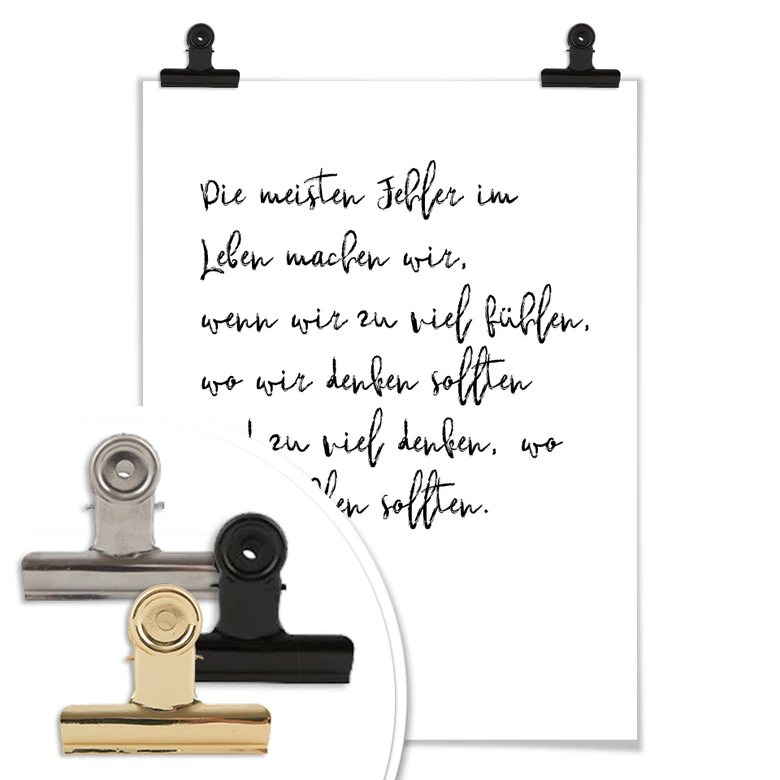 Die meisten Fehler im
Leben machen wir,
wenn wir zu viel fühlen,
wo wir denken sollten
zu viel denken, wo
sollten.